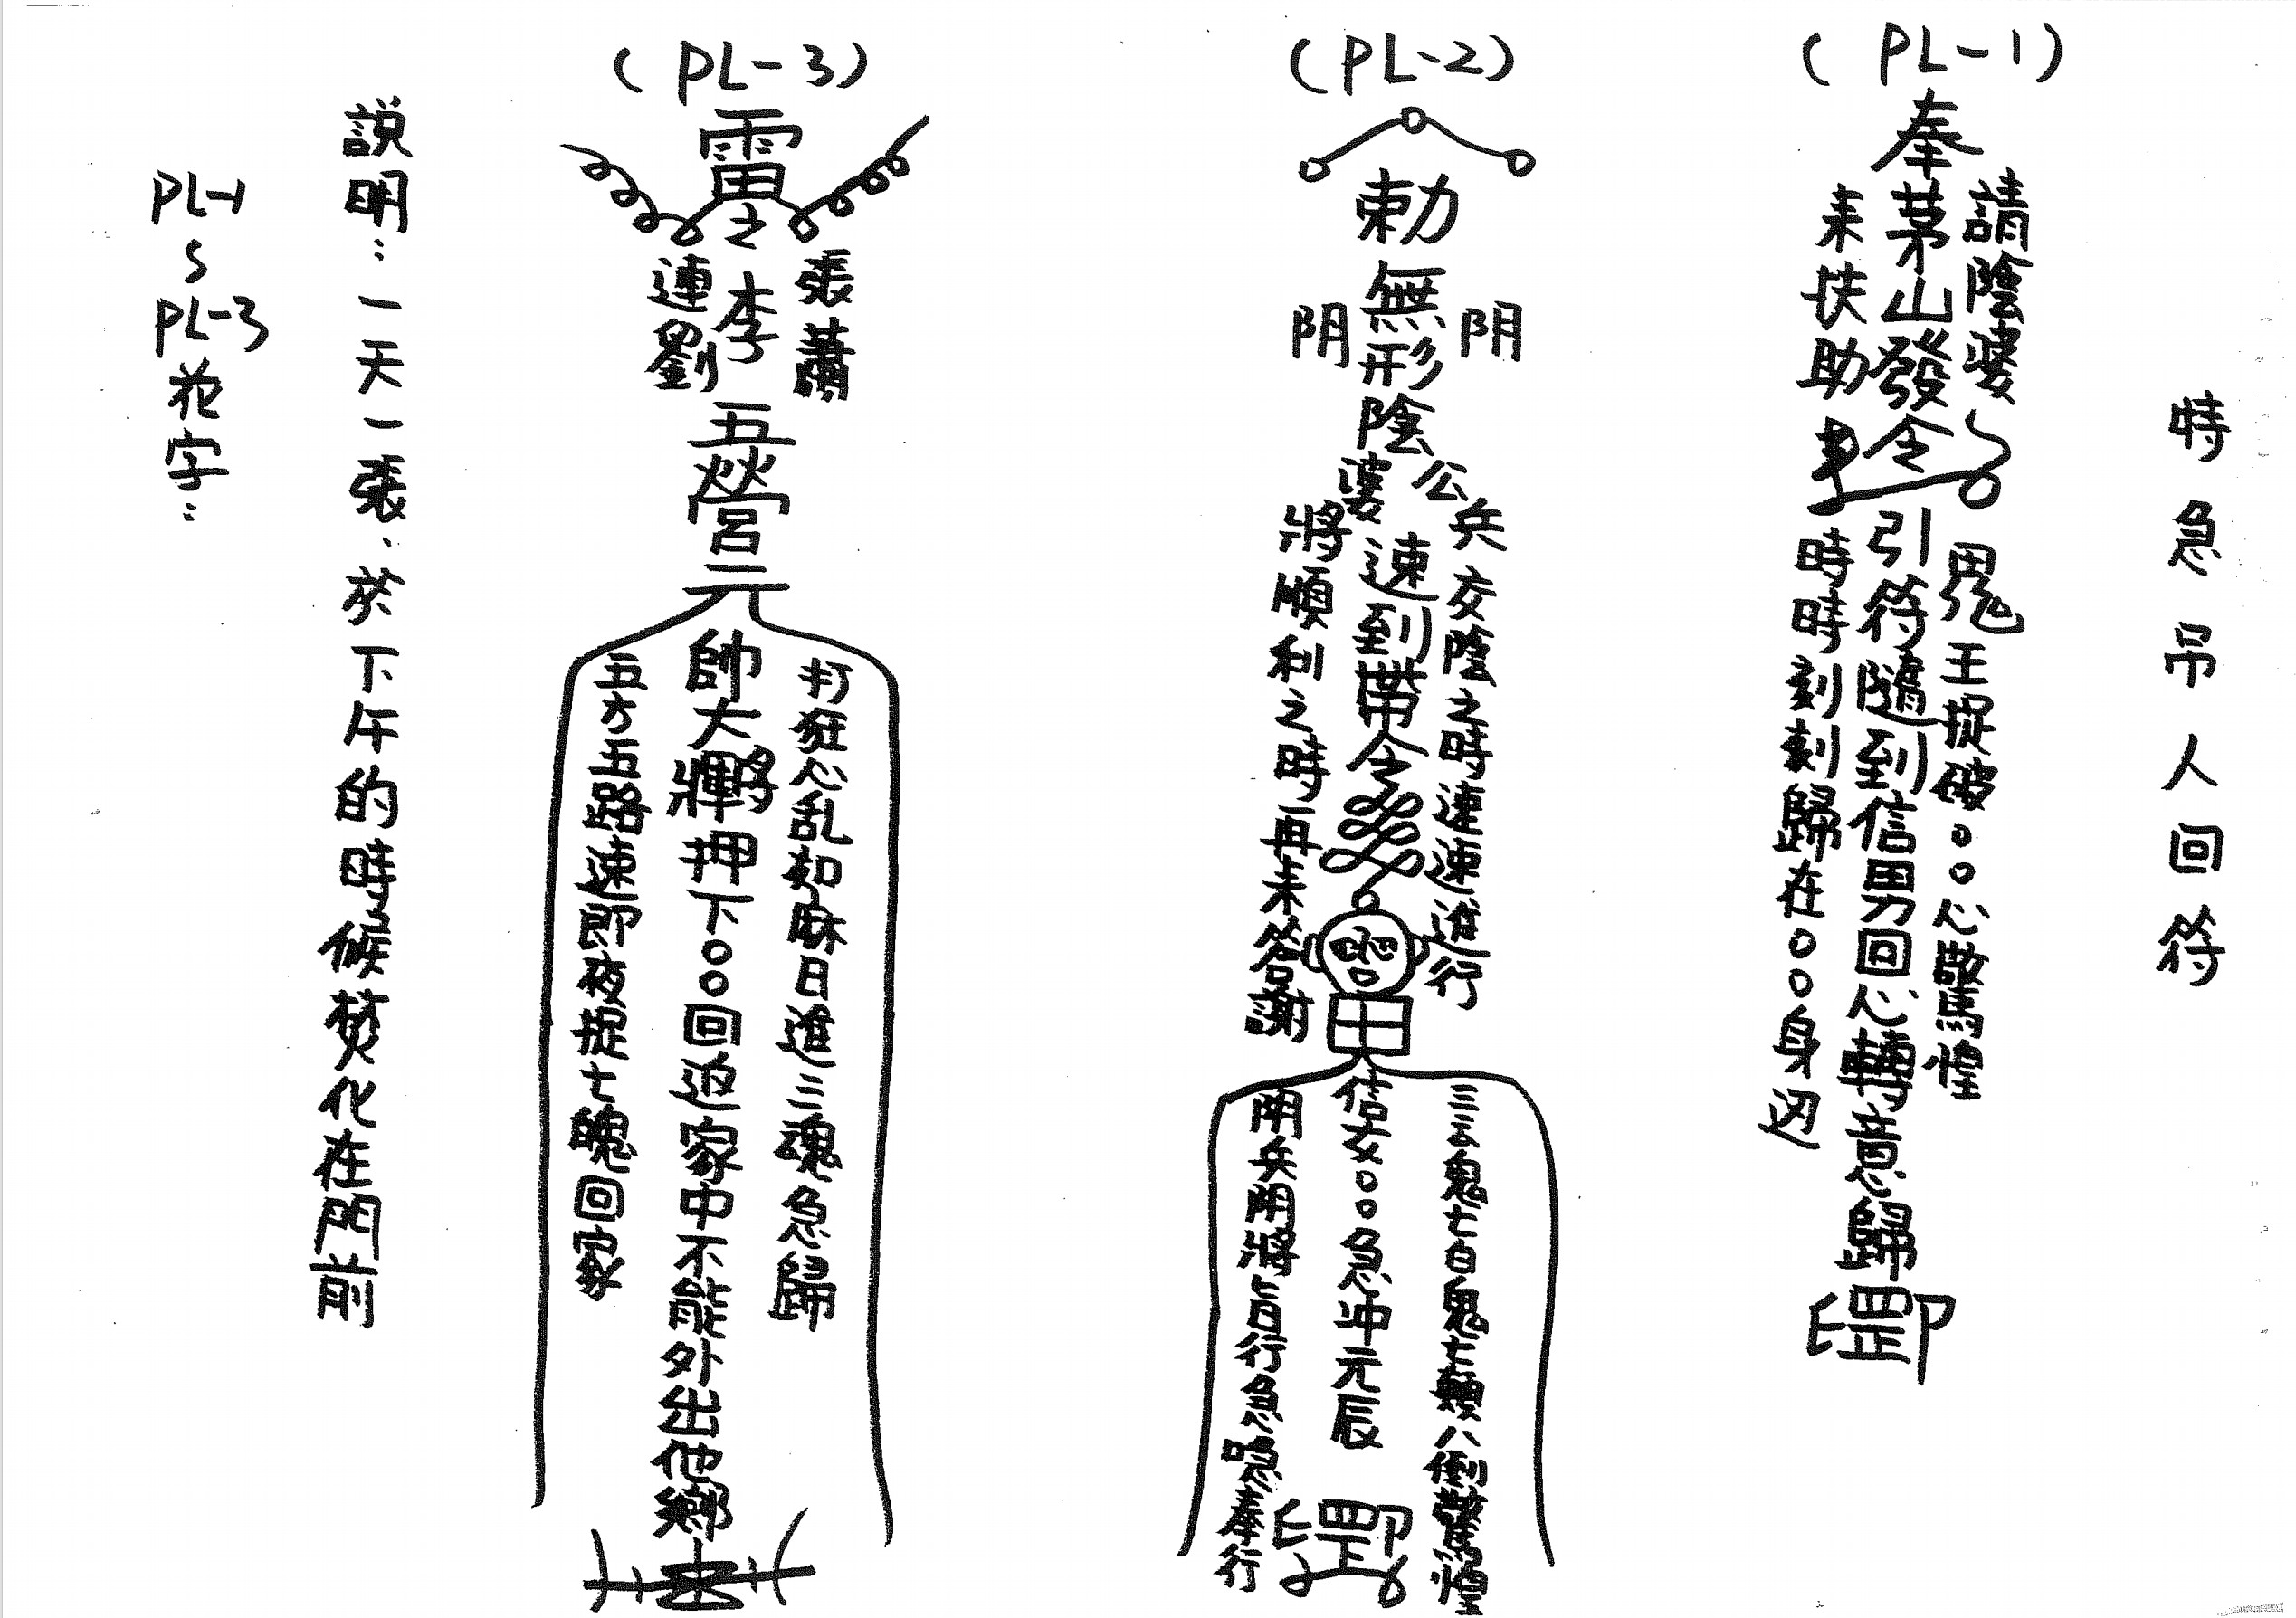 時急吊人回符
(PL-1)
請陰婆
奉茅山發令
來扶助
鬼王捉破○○心驚惶
引符隨到信男回心轉意歸
時時刻刻歸在○○身边
(PL-2)
勅無形陰
阴
阴
公
婆
兵交陰之時速速進行
速到帶令
將順利之時再來答謝
信女○○急冲元辰
(PL-3)
雷令
張蕭
李
連劉
五營元帥大將押下○○回返家中不能外出他鄉
打狂心乱如麻日進三魂急歸
五方五路速即夜捉七魄回家
說明:一天一張、於下午的時候焚化在門前
PL-1
PL-3花字: